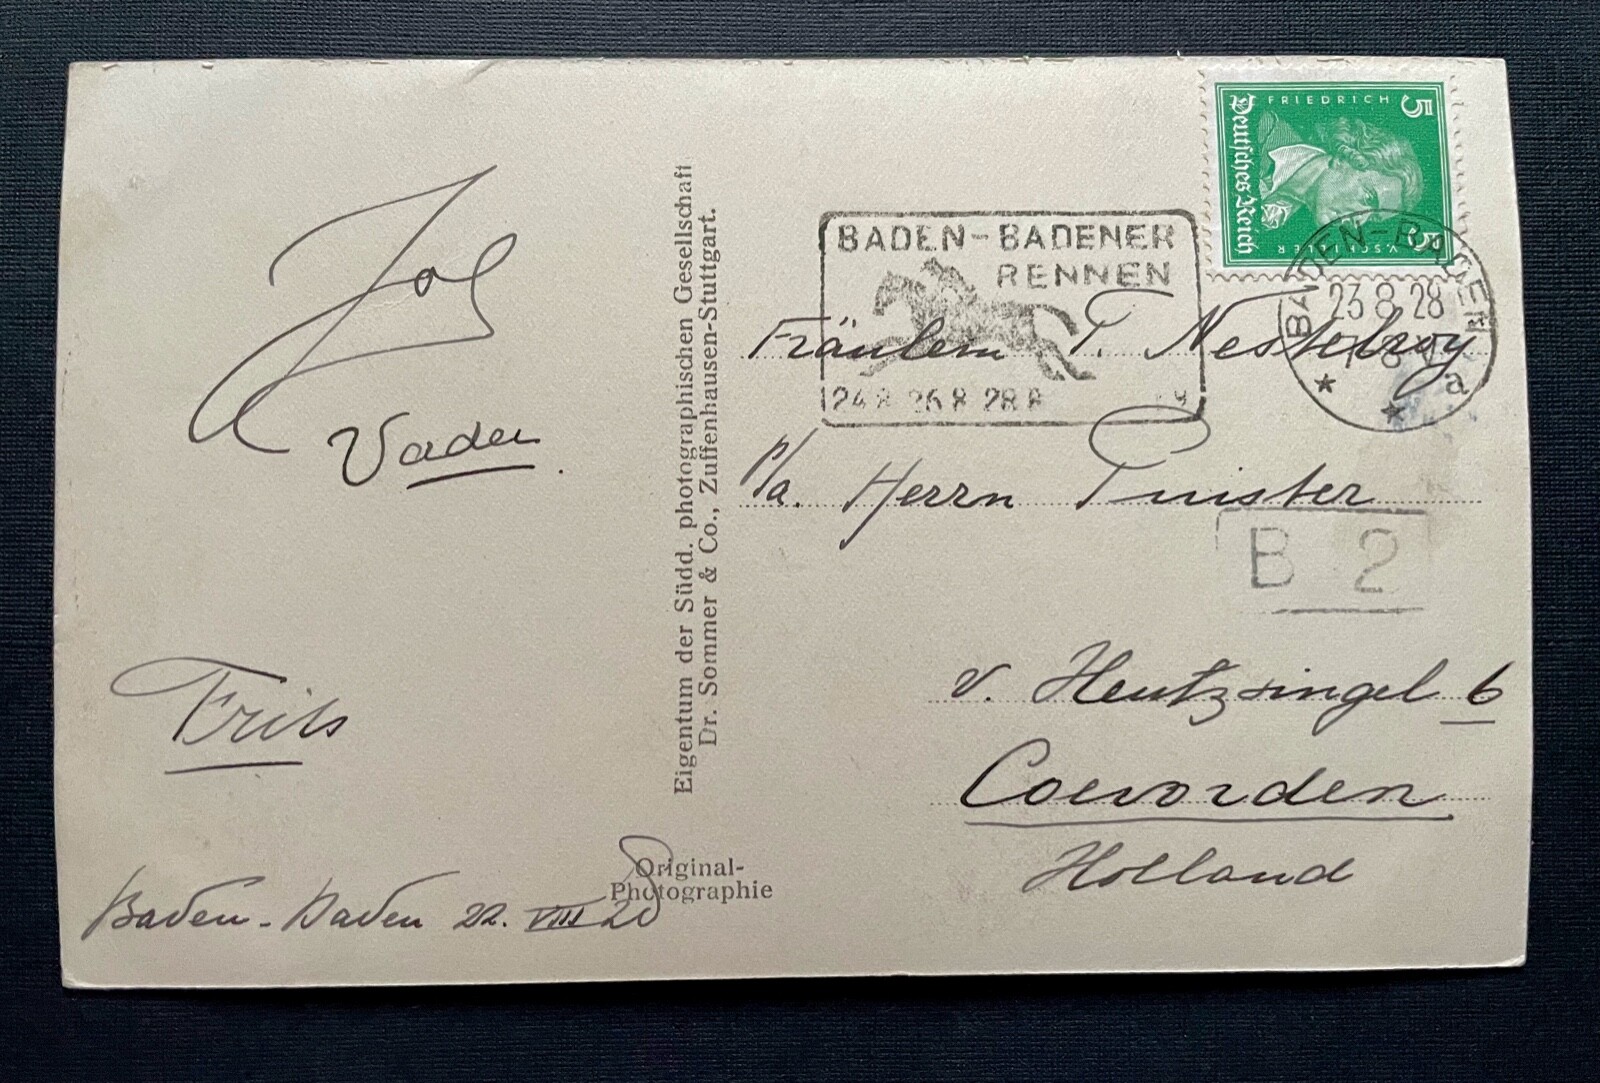 Vader
Frits
Baden-Baden 22. VIII 28
Eigentum der Südd. photographischen Gesellschaft
Dr. Sommer & Co., Zuffenhausen-Stuttgart.
Original-
Photographie
5 FRIEDRICH
Deutsches Reich
5 V. SCHILLER
BADEN-BADENER
RENNEN
24 8 26 8 28 8
BADEN-BADEN
23 8 28
a
Fräulein T. Nestelroy
p/a. Herrn Tuister
B 2
v. Heutzsingel 6
Coevorden
Holland